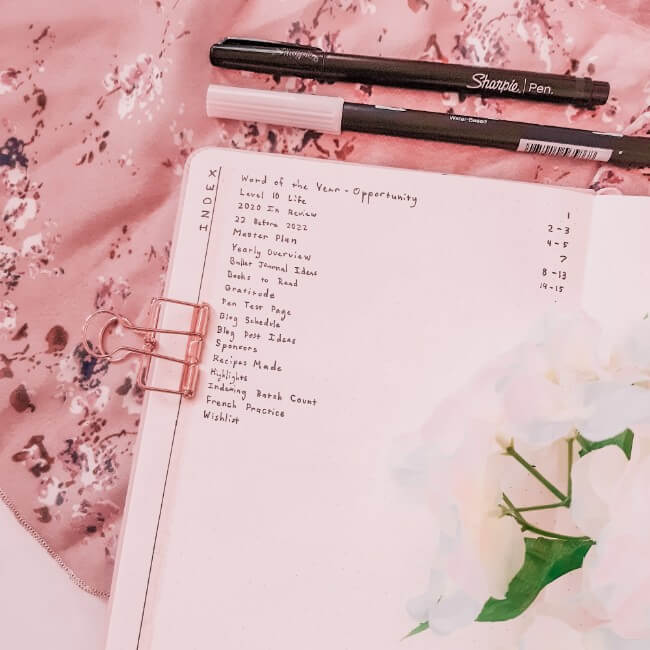 Sharpie. | Pen.
Water-Based
INDEX
Word of the Year - Opportunity 1
Level 10 Life 2-3
2020 In Review 4-5
22 Before 2022 7
Master Plan 8-13
Yearly Overview 14-15
Bullet Journal Ideas
Books to Read
Gratitude
Pen Test Page
Blog Schedule
Blog Post Ideas
Sponsors
Recipes Made
Highlights
Indexing Batch Count
French Practice
Wishlist